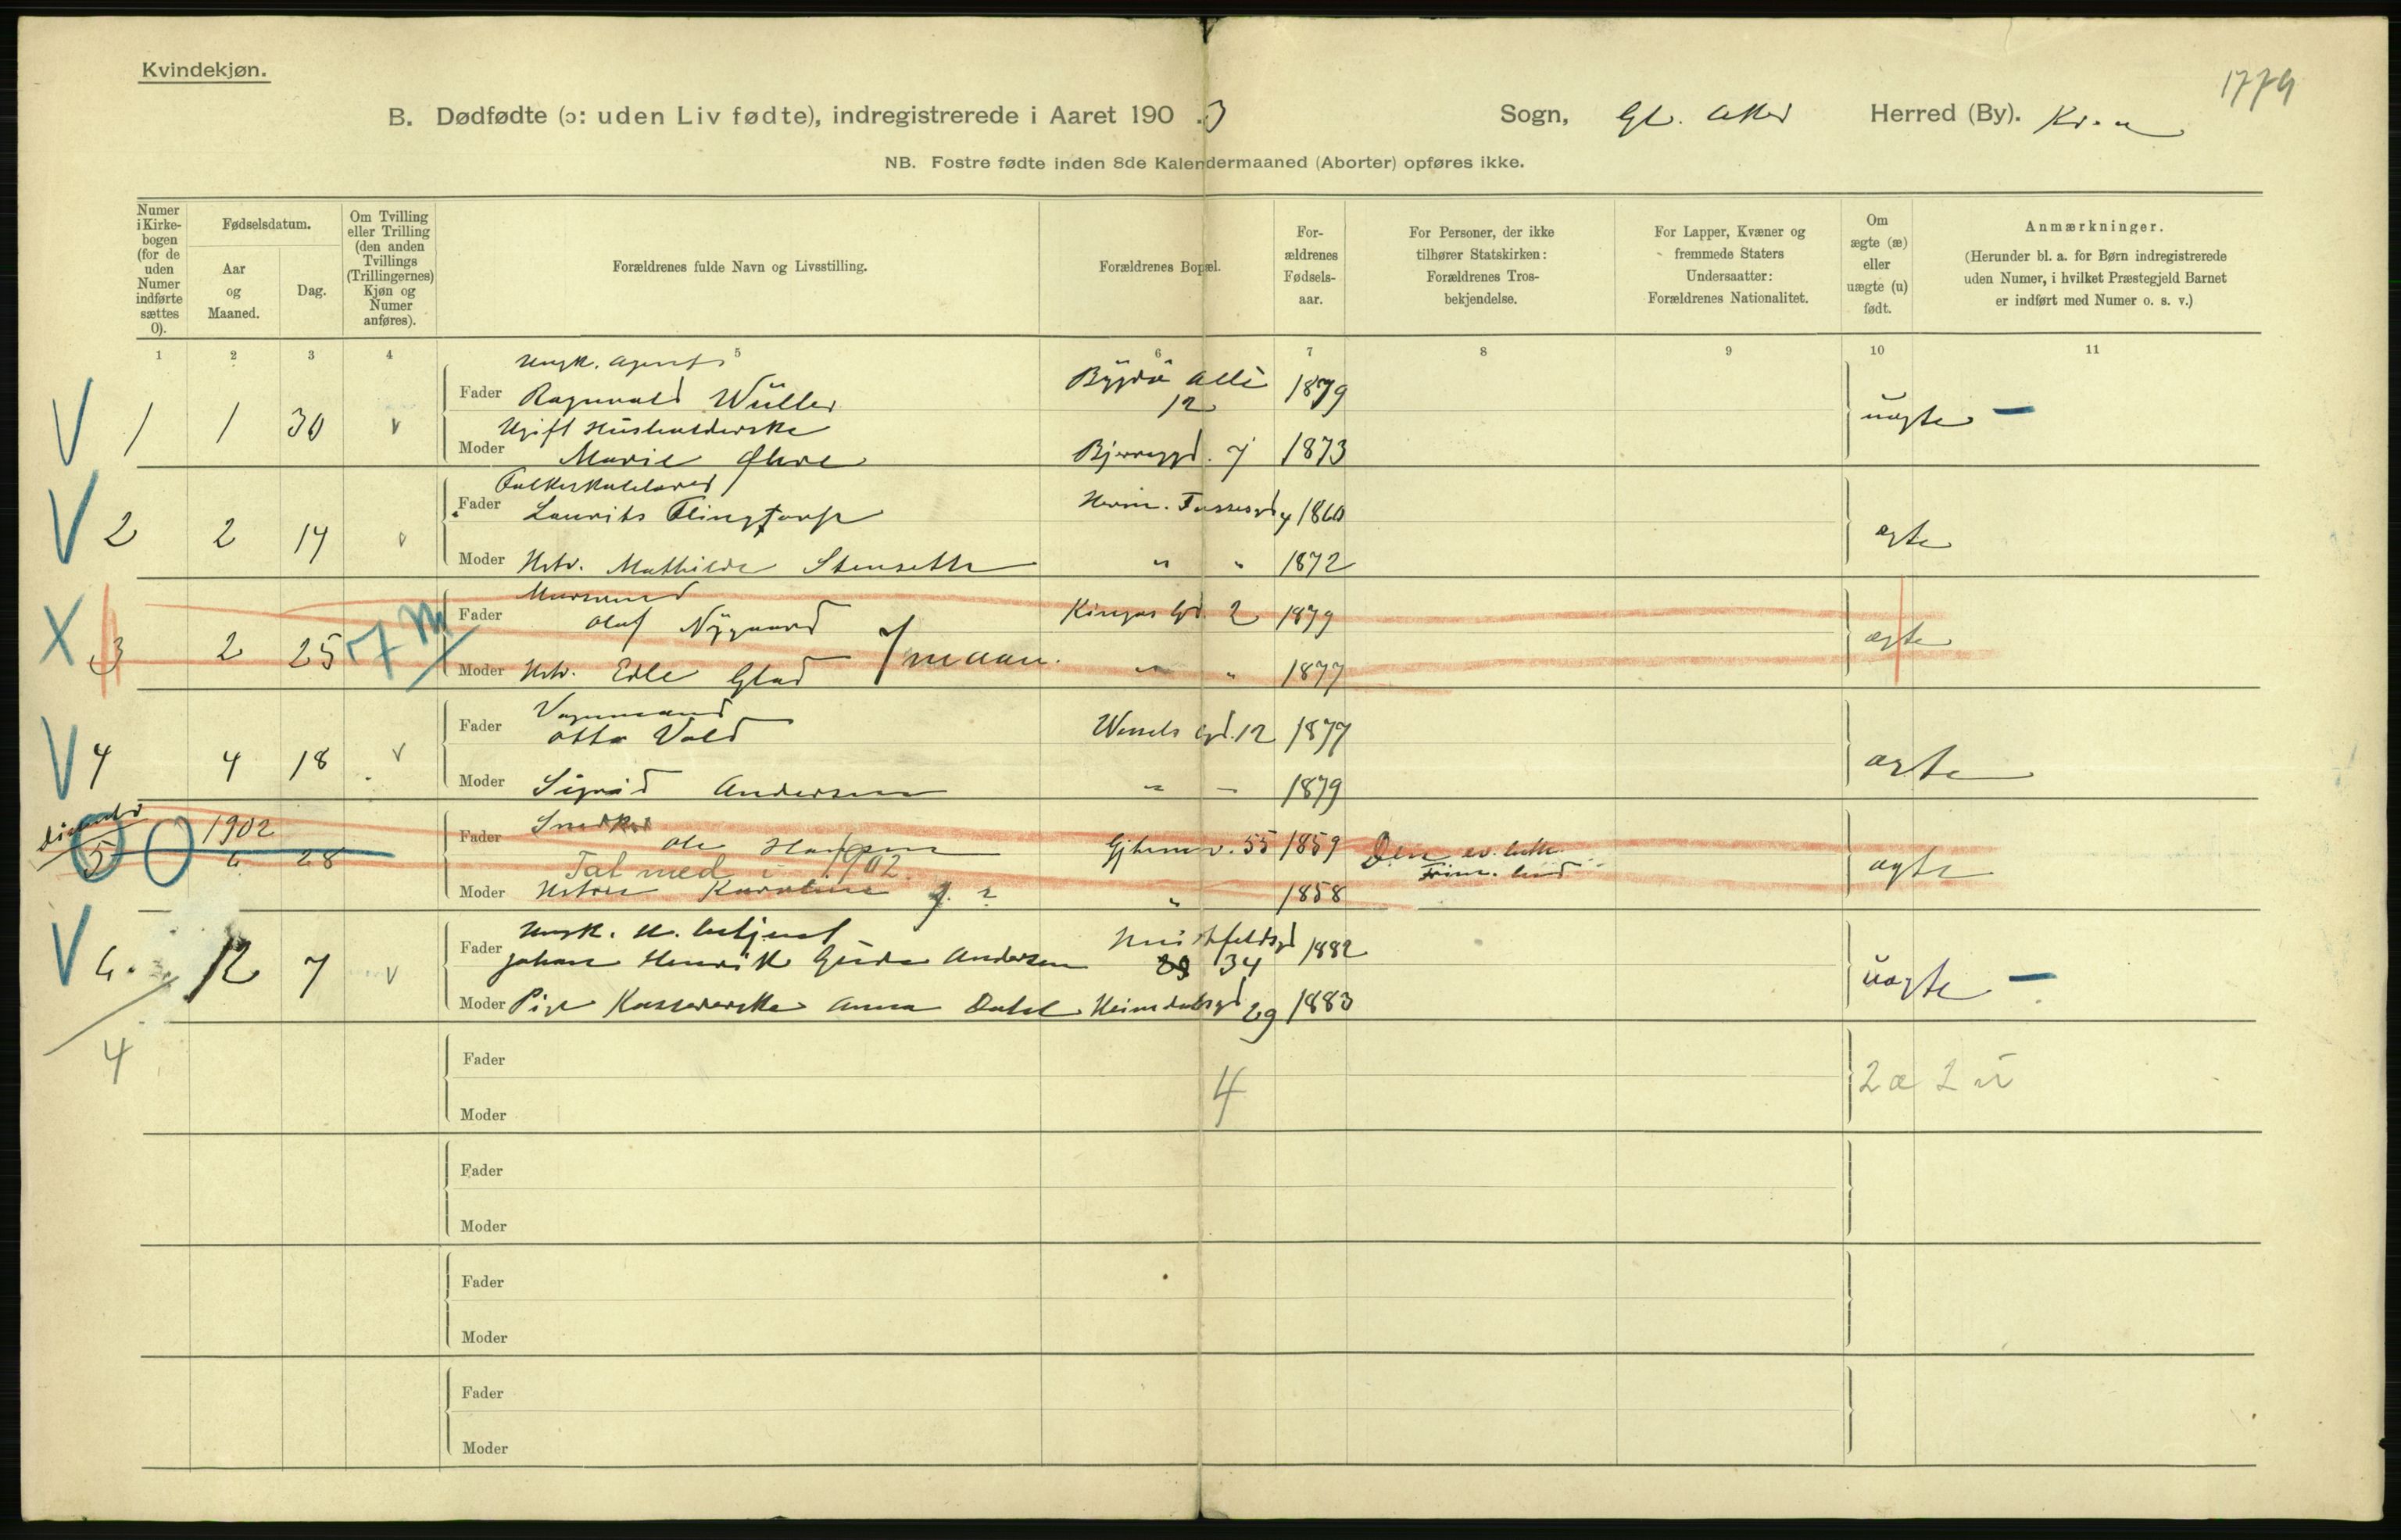 Kvindekjøn.
1779
B. Dødfødte (ɔ: uden Liv fødte), indregistrerede i Aaret 1903 Sogn, Gl. Aker Herred (By). Kr.a
NB. Fostre fødte inden 8de Kalendermaaned (Aborter) opføres ikke.
Numer i Kirke-bogen (for de uden Numer indførte sættes 0).
Fødselsdatum.
Aar og Maaned.
Dag.
Om Tvilling eller Trilling (den anden Tvillings (Trillingernes) Kjøn og Numer anføres).
Forældrenes fulde Navn og Livsstilling.
Forældrenes Bopæl.
For-ældrenes Fødsels-aar.
For Personer, der ikke tilhører Statskirken: Forældrenes Tros-bekjendelse.
For Lapper, Kvæner og fremmede Staters Undersaatter: Forældrenes Nationalitet.
Om ægte (æ) eller uægte (u) født.
Anmærkninger.
(Herunder bl. a. for Børn indregistrerede uden Numer, i hvilket Præstegjeld Barnet er indført med Numer o. s. v.)
1 2 3 4 5 6 7 8 9 10 11
Ungk. Agent
V 1 1 30 v Fader Ragnvald Wüller Bygdø Allé 12 1879 uægte –
Ugift Husholderske
Moder Marie Øhre 7 1873
Folkeskolelærer
V 2 2 14 v Fader Laurits Flingtorp Herm. Fossesgd 4 1860 ægte
Moder Hstr. Mathilde Stenseth " " 1872
Murmand
X 3 2 25 7 M Fader Olaf Nygaard Kingos Gd. 2 1879 ægte
7 maan.
Moder Hstr. Edle Glad " " 1877
Vognmand
V 4 4 18 v Fader Otto Vold Wessels Gd. 12 1877 ægte
Moder Sigrid Andersen " – 1879
Snedker
5 0 1902 6 28 Fader Ole Hansen Gjøhusv. 55 1859 Den ev. luth. Frim. ægte
Tal med i 1902.
Moder Hstru Karoline 1858
Ungk. H. betjent
V 6. 12 7 v Fader Johan Henrik Andersen 29 34 1882 uægte –
Moder Pige Kassererske Anna Dahl Heimdalsgd 29 1883
4 Fader 4 2 æ 2 u
Moder
Fader
Moder
Fader
Moder
Fader
Moder